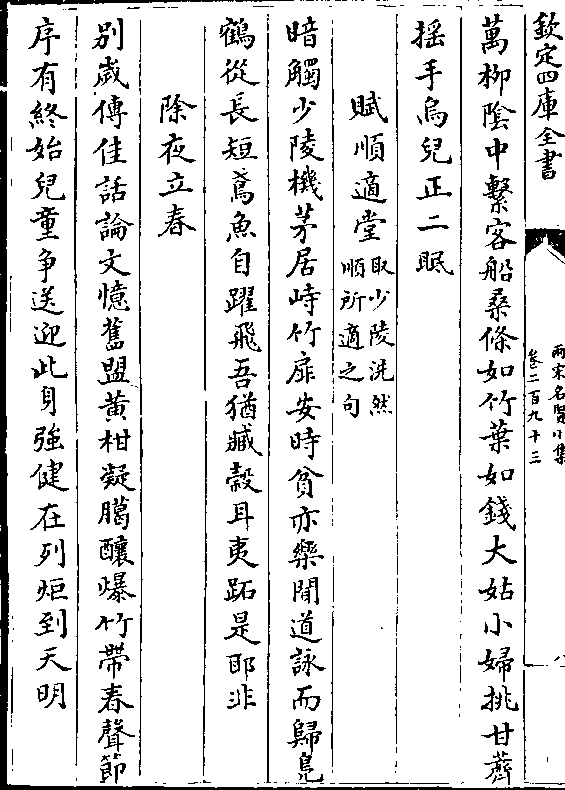 欽定四庫全書
兩宋名賢小集
卷二百九十三
八
萬柳陰中繫客船桑條如竹葉如錢大姑小婦挑甘薺
搖手烏兒正二眠
賦順適堂取少陵洗然
順所適之句
暗觸少陵機茅居峙竹扉安時貧亦樂聞道詠而歸鳧
鶴從長短鳶魚自躍飛吾猶臧穀耳夷跖是耶非
除夜立春
別歲傳佳話論文憶舊盟黃柑凝臈釀爆竹帶春聲節
序有終始兒童爭送迎此身強健在列炬到天明